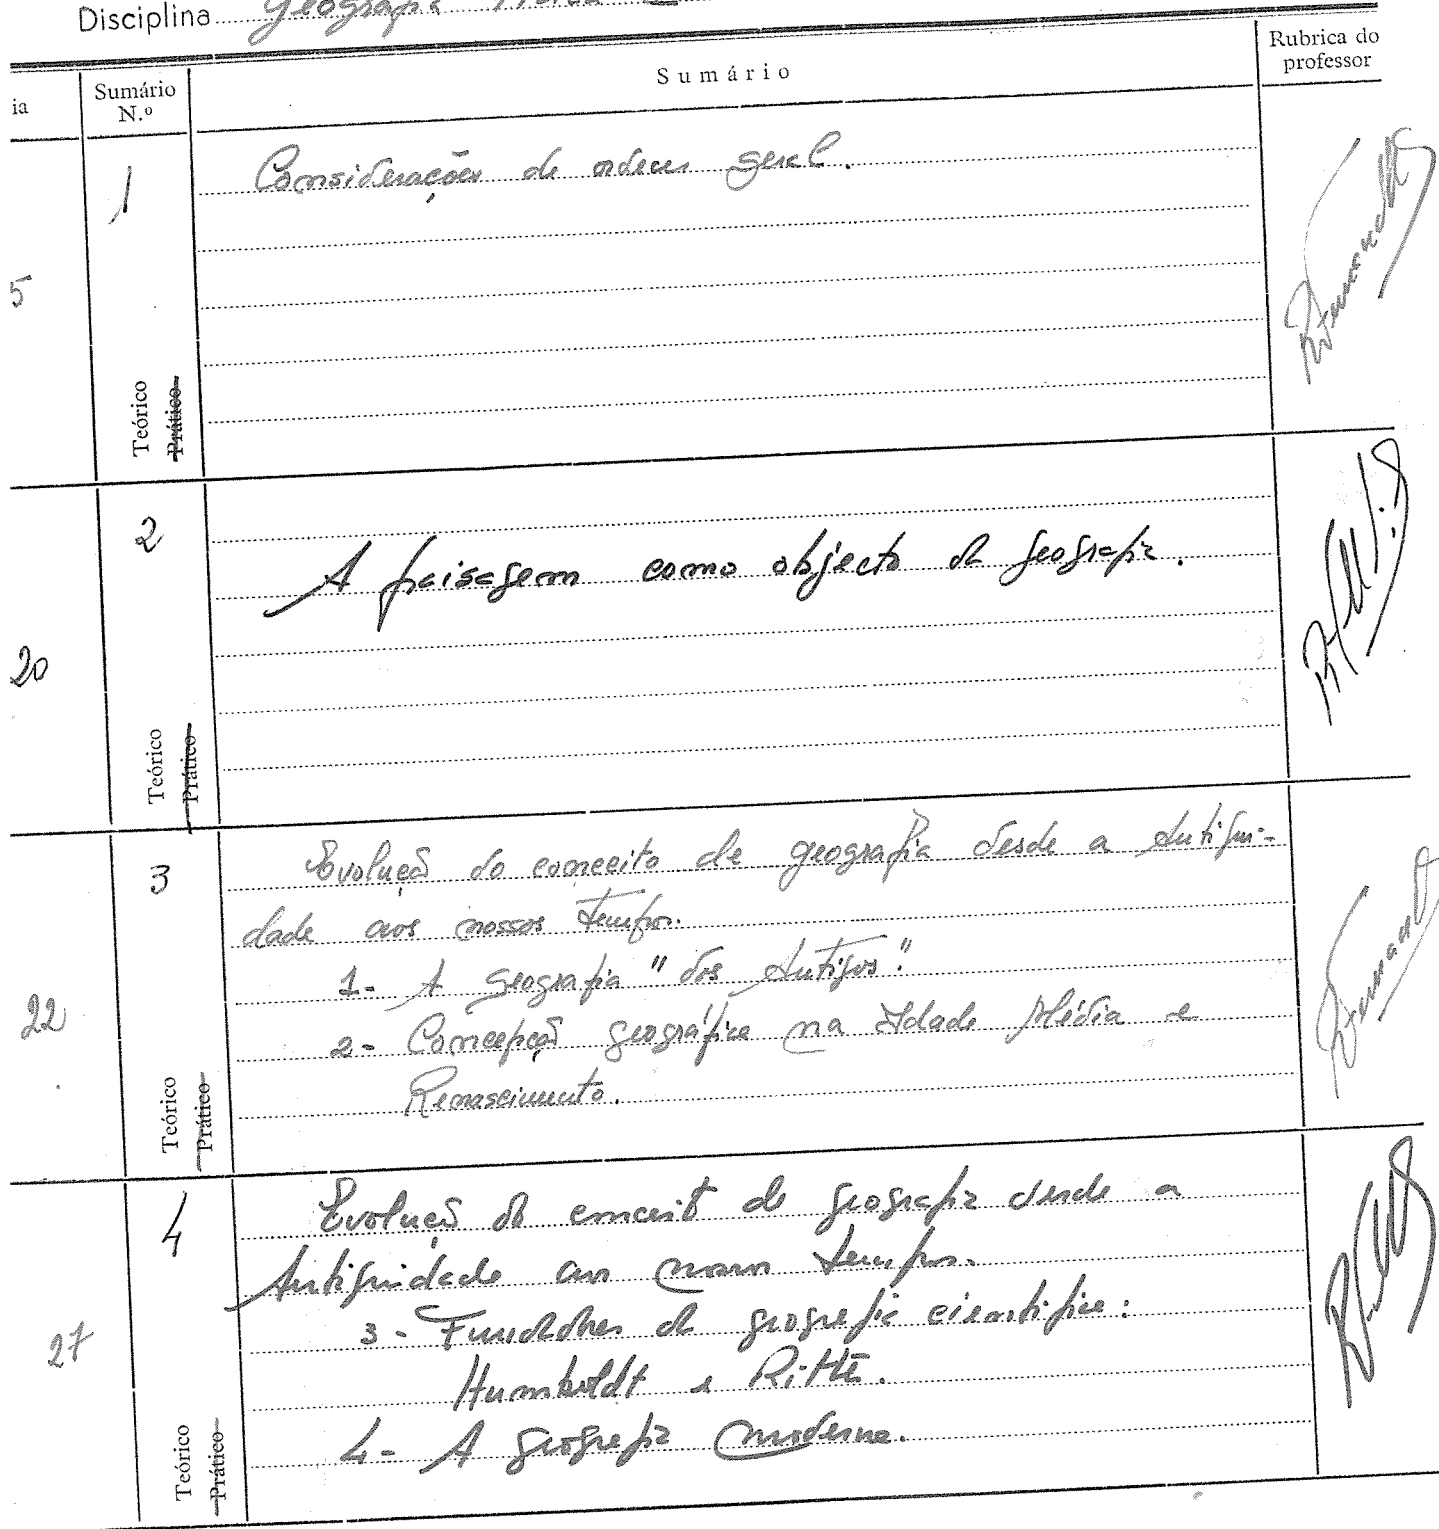 Disciplina Geografia
ia
Sumário N.º
Sumário
Rubrica do professor
5
1
Teórico
Prático
Considerações de ordem geral.
20
2
Teórico
Prático
A paisagem como objecto da geografia.
22
3
Teórico
Prático
Evolução do conceito de geografia desde a Antigui-
dade aos nossos tempos.
1- A geografia "dos Antigos".
2- Concepção geográfica na Idade Média e
Renascimento.
27
4
Teórico
Prático
Evolução do conceito de geografia desde a
Antiguidade aos nossos tempos.
3- Fundadores da geografia científica:
Humboldt e Ritter.
4- A geografia moderna.